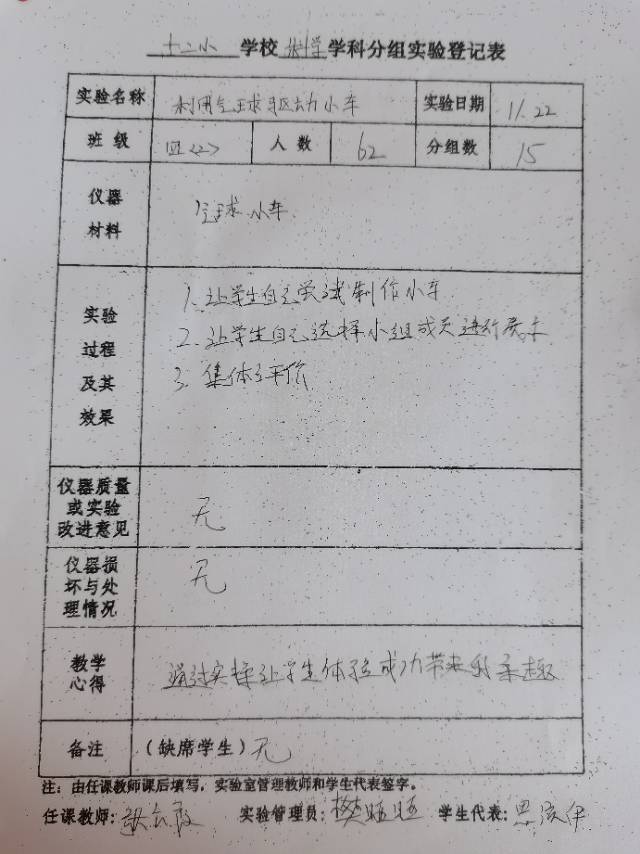 十二小 学校 科学 学科分组实验登记表
实验名称 利用气球驱动小车 实验日期 11.22
班级 四<2> 人数 62 分组数 15
仪器材料 气球 小车
实验过程及其效果
1. 让学生自己尝试制作小车
2. 让学生自己选择小组成员进行展示
3. 集体评价
仪器质量或实验改进意见 无
仪器损坏与处理情况 无
教学心得 通过实操让学生体验成功带来的乐趣
备注 (缺席学生) 无
注：由任课教师课后填写，实验室管理教师和学生代表签字。
任课教师: 实验管理员: 樊 学生代表: